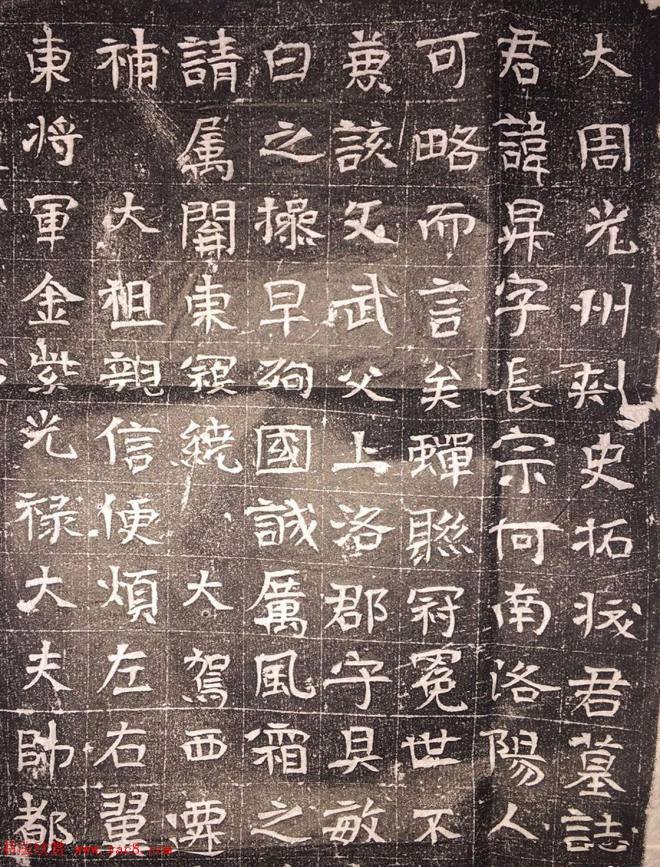 大周光州刾史拓拔君墓誌
君諱昇字長宗何南洛陽人
可略而言矣蟬聯冠冕世不
兼該文武父上洛郡守具敏
白之操早殉國誠厲風霜之
請属關東寇繞大駕西
補大祖親信便煩左右翼
東将軍金紫光禄大夫帥都
www.yac8.com